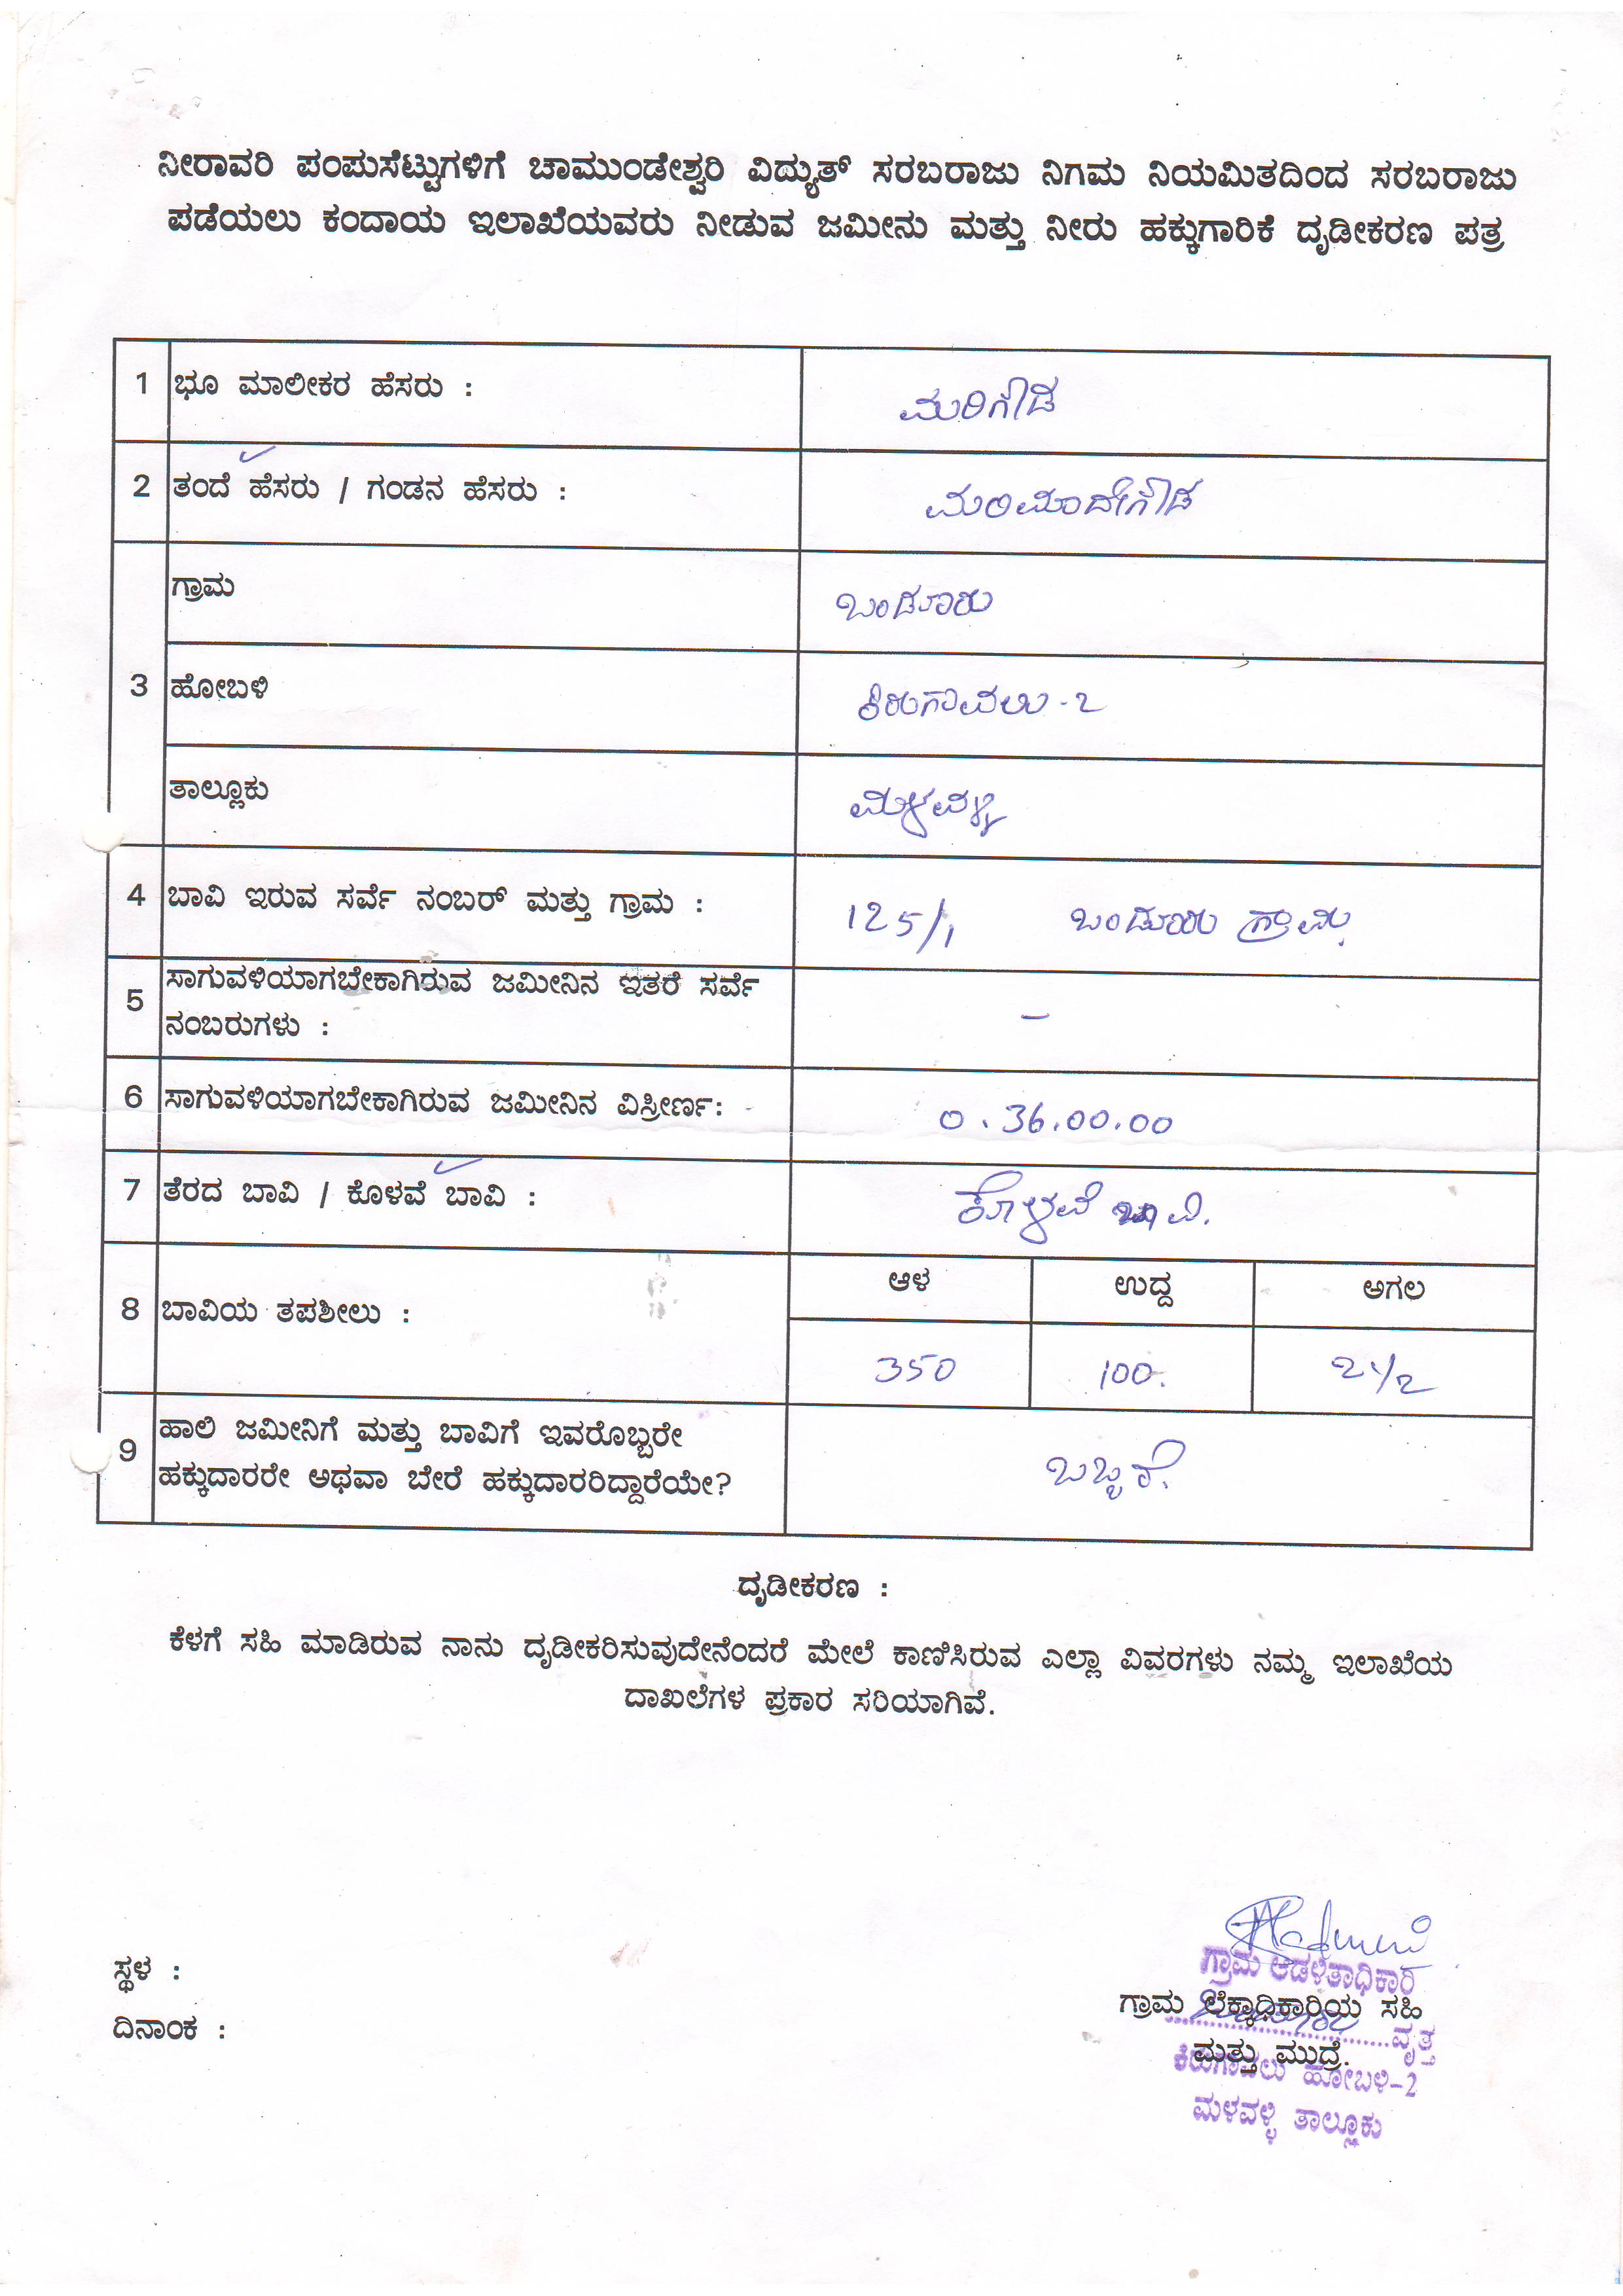 ನೀರಾವರಿ ಪಂಪುಸೆಟ್ಟುಗಳಿಗೆ ಚಾಮುಂಡೇಶ್ವರಿ ವಿದ್ಯುತ್ ಸರಬರಾಜು ನಿಗಮ ನಿಯಮಿತದಿಂದ ಸರಬರಾಜು
ಪಡೆಯಲು ಕಂದಾಯ ಇಲಾಖೆಯವರು ನೀಡುವ ಜಮೀನು ಮತ್ತು ನೀರು ಹಕ್ಕುಗಾರಿಕೆ ದೃಡೀಕರಣ ಪತ್ರ
1 ಭೂ ಮಾಲೀಕರ ಹೆಸರು : ಮರಿಗೌಡ
2 ತಂದೆ ಹೆಸರು / ಗಂಡನ ಹೆಸರು : ಮರಿಮಾದೇಗೌಡ
ಗ್ರಾಮ ಬಂಡೂರು
3 ಹೋಬಳಿ ಕಿರುಗಾವಲು - 2
ತಾಲ್ಲೂಕು ಮಳವಳ್ಳಿ
4 ಬಾವಿ ಇರುವ ಸರ್ವೆ ನಂಬರ್ ಮತ್ತು ಗ್ರಾಮ : 125/1 ಬಂಡೂರು ಗ್ರಾಮ
5 ಸಾಗುವಳಿಯಾಗಬೇಕಾಗಿರುವ ಜಮೀನಿನ ಇತರೆ ಸರ್ವೆ
ನಂಬರುಗಳು : –
6 ಸಾಗುವಳಿಯಾಗಬೇಕಾಗಿರುವ ಜಮೀನಿನ ವಿಸ್ರೀರ್ಣ: 0.36.00.00
7 ತೆರದ ಬಾವಿ / ಕೊಳವೆ ಬಾವಿ : ಕೊಳವೆ ಬಾವಿ.
ಆಳ ಉದ್ದ ಅಗಲ
8 ಬಾವಿಯ ತಪಶೀಲು :
350 100. 2 1/2
9 ಹಾಲಿ ಜಮೀನಿಗೆ ಮತ್ತು ಬಾವಿಗೆ ಇವರೊಬ್ಬರೇ
ಹಕ್ಕುದಾರರೇ ಅಥವಾ ಬೇರೆ ಹಕ್ಕುದಾರರಿದ್ದಾರೆಯೇ? ಒಬ್ಬರೆ.
ದೃಡೀಕರಣ :
ಕೆಳಗೆ ಸಹಿ ಮಾಡಿರುವ ನಾನು ದೃಡೀಕರಿಸುವುದೇನೆಂದರೆ ಮೇಲೆ ಕಾಣಿಸಿರುವ ಎಲ್ಲಾ ವಿವರಗಳು ನಮ್ಮ ಇಲಾಖೆಯ
ದಾಖಲೆಗಳ ಪ್ರಕಾರ ಸರಿಯಾಗಿವೆ.
ಸ್ಥಳ :
ದಿನಾಂಕ :
ಗ್ರಾಮ ಆಡಳಿತಾಧಿಕಾರಿ
ಗ್ರಾಮ ಲೆಕ್ಕಾಧಿಕಾರಿಯ ಸಹಿ
ವೃತ್ತ
ಮತ್ತು ಮುದ್ರೆ.
ಕಿರುಗಾವಲು ಹೋಬಳಿ-2
ಮಳವಳ್ಳಿ ತಾಲ್ಲೂಕು